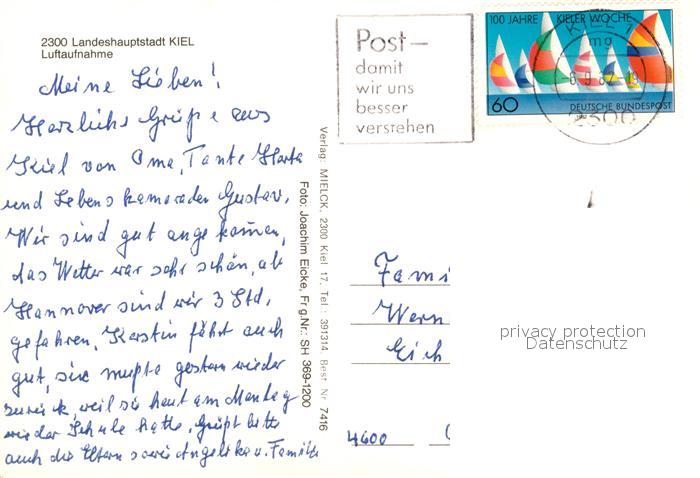 2300 Landeshauptstadt KIEL
Luftaufnahme
Meine Lieben!
Herzliche Grüße aus
Kiel von Oma, Tante Herta
und Lebenskameraden Gustav.
Wir sind gut angekommen,
das Wetter war sehr schön, ab
Hannover sind wir 3 Std.
gefahren. Kerstin fährt auch
gut, sie mußte gestern wieder
zurück, weil sie heut am Montag
wieder Schule hatte. Grüßt bitte
auch die Eltern sowie Angelika u. Familie
Verlag: MIELCK, 2300 Kiel 17, Tel.: 391314, Best. Nr. 7416
Foto: Joachim Eicke, Frg.Nr.: SH 369-1200
Post–
damit
wir uns
besser
verstehen
100 JAHRE KIELER WOCHE
60
DEUTSCHE BUNDESPOST
KIEL 1
mg
-6.9.82-19
2300
Fami
Wern
Eich
4600
privacy protection
Datenschutz